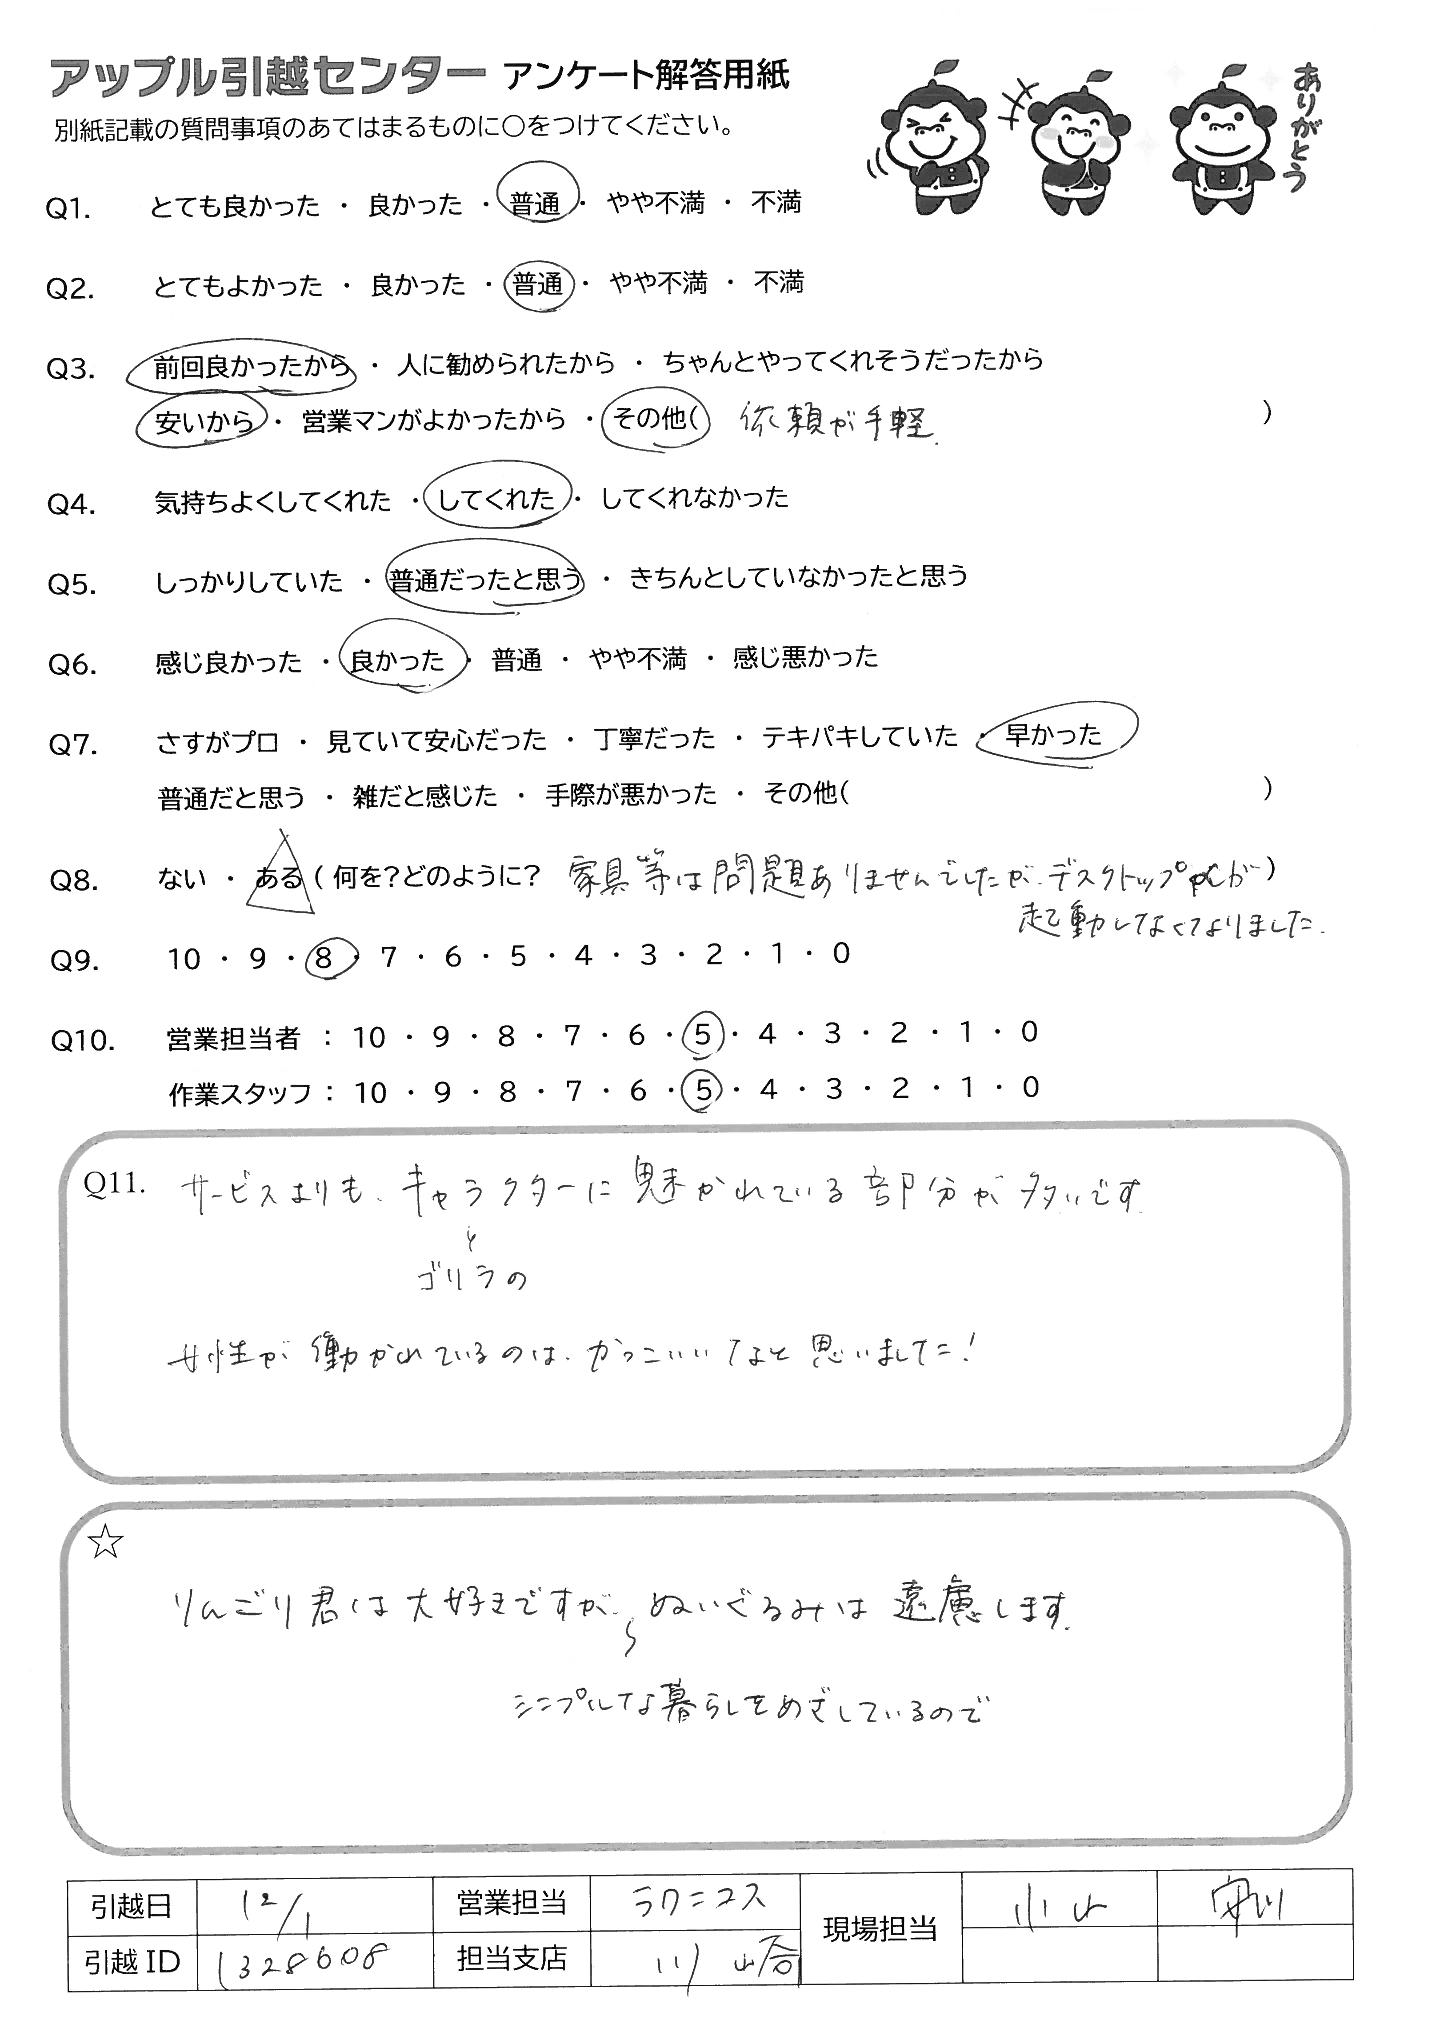 アップル引越センター アンケート解答用紙
ありがとう
別紙記載の質問事項のあてはまるものに○をつけてください。
Q1. とても良かった ・ 良かった ・ 普通 ・ やや不満 ・ 不満
Q2. とてもよかった ・ 良かった ・ 普通 ・ やや不満 ・ 不満
Q3. 前回良かったから ・ 人に勧められたから ・ ちゃんとやってくれそうだったから
安いから ・ 営業マンがよかったから ・ その他( 依頼が手軽. )
Q4. 気持ちよくしてくれた ・ してくれた ・ してくれなかった
Q5. しっかりしていた ・ 普通だったと思う ・ きちんとしていなかったと思う
Q6. 感じ良かった ・ 良かった ・ 普通 ・ やや不満 ・ 感じ悪かった
Q7. さすがプロ ・ 見ていて安心だった ・ 丁寧だった ・ テキパキしていた ・ 早かった
普通だと思う ・ 雑だと感じた ・ 手際が悪かった ・ その他( )
Q8. ない ・ ある ( 何を?どのように? 家具等は問題ありませんでしたが、デスクトップPCが )
起動しなくなりました.
Q9. 10 ・ 9 ・ 8 ・ 7 ・ 6 ・ 5 ・ 4 ・ 3 ・ 2 ・ 1 ・ 0
Q10. 営業担当者 : 10 ・ 9 ・ 8 ・ 7 ・ 6 ・ 5 ・ 4 ・ 3 ・ 2 ・ 1 ・ 0
作業スタッフ : 10 ・ 9 ・ 8 ・ 7 ・ 6 ・ 5 ・ 4 ・ 3 ・ 2 ・ 1 ・ 0
Q11. サービスよりも、キャラクターに魅かれている部分が多いです
と
ゴリラの
女性が働かれているのは、かっこいいなと思いました!
☆
りんごり君は大好きですが、ぬいぐるみは遠慮します.
シンプルな暮らしをめざしているので
引越日 12/1 営業担当 ラクニコス 現場担当 小山 安川
引越ID 1328608 担当支店 川崎